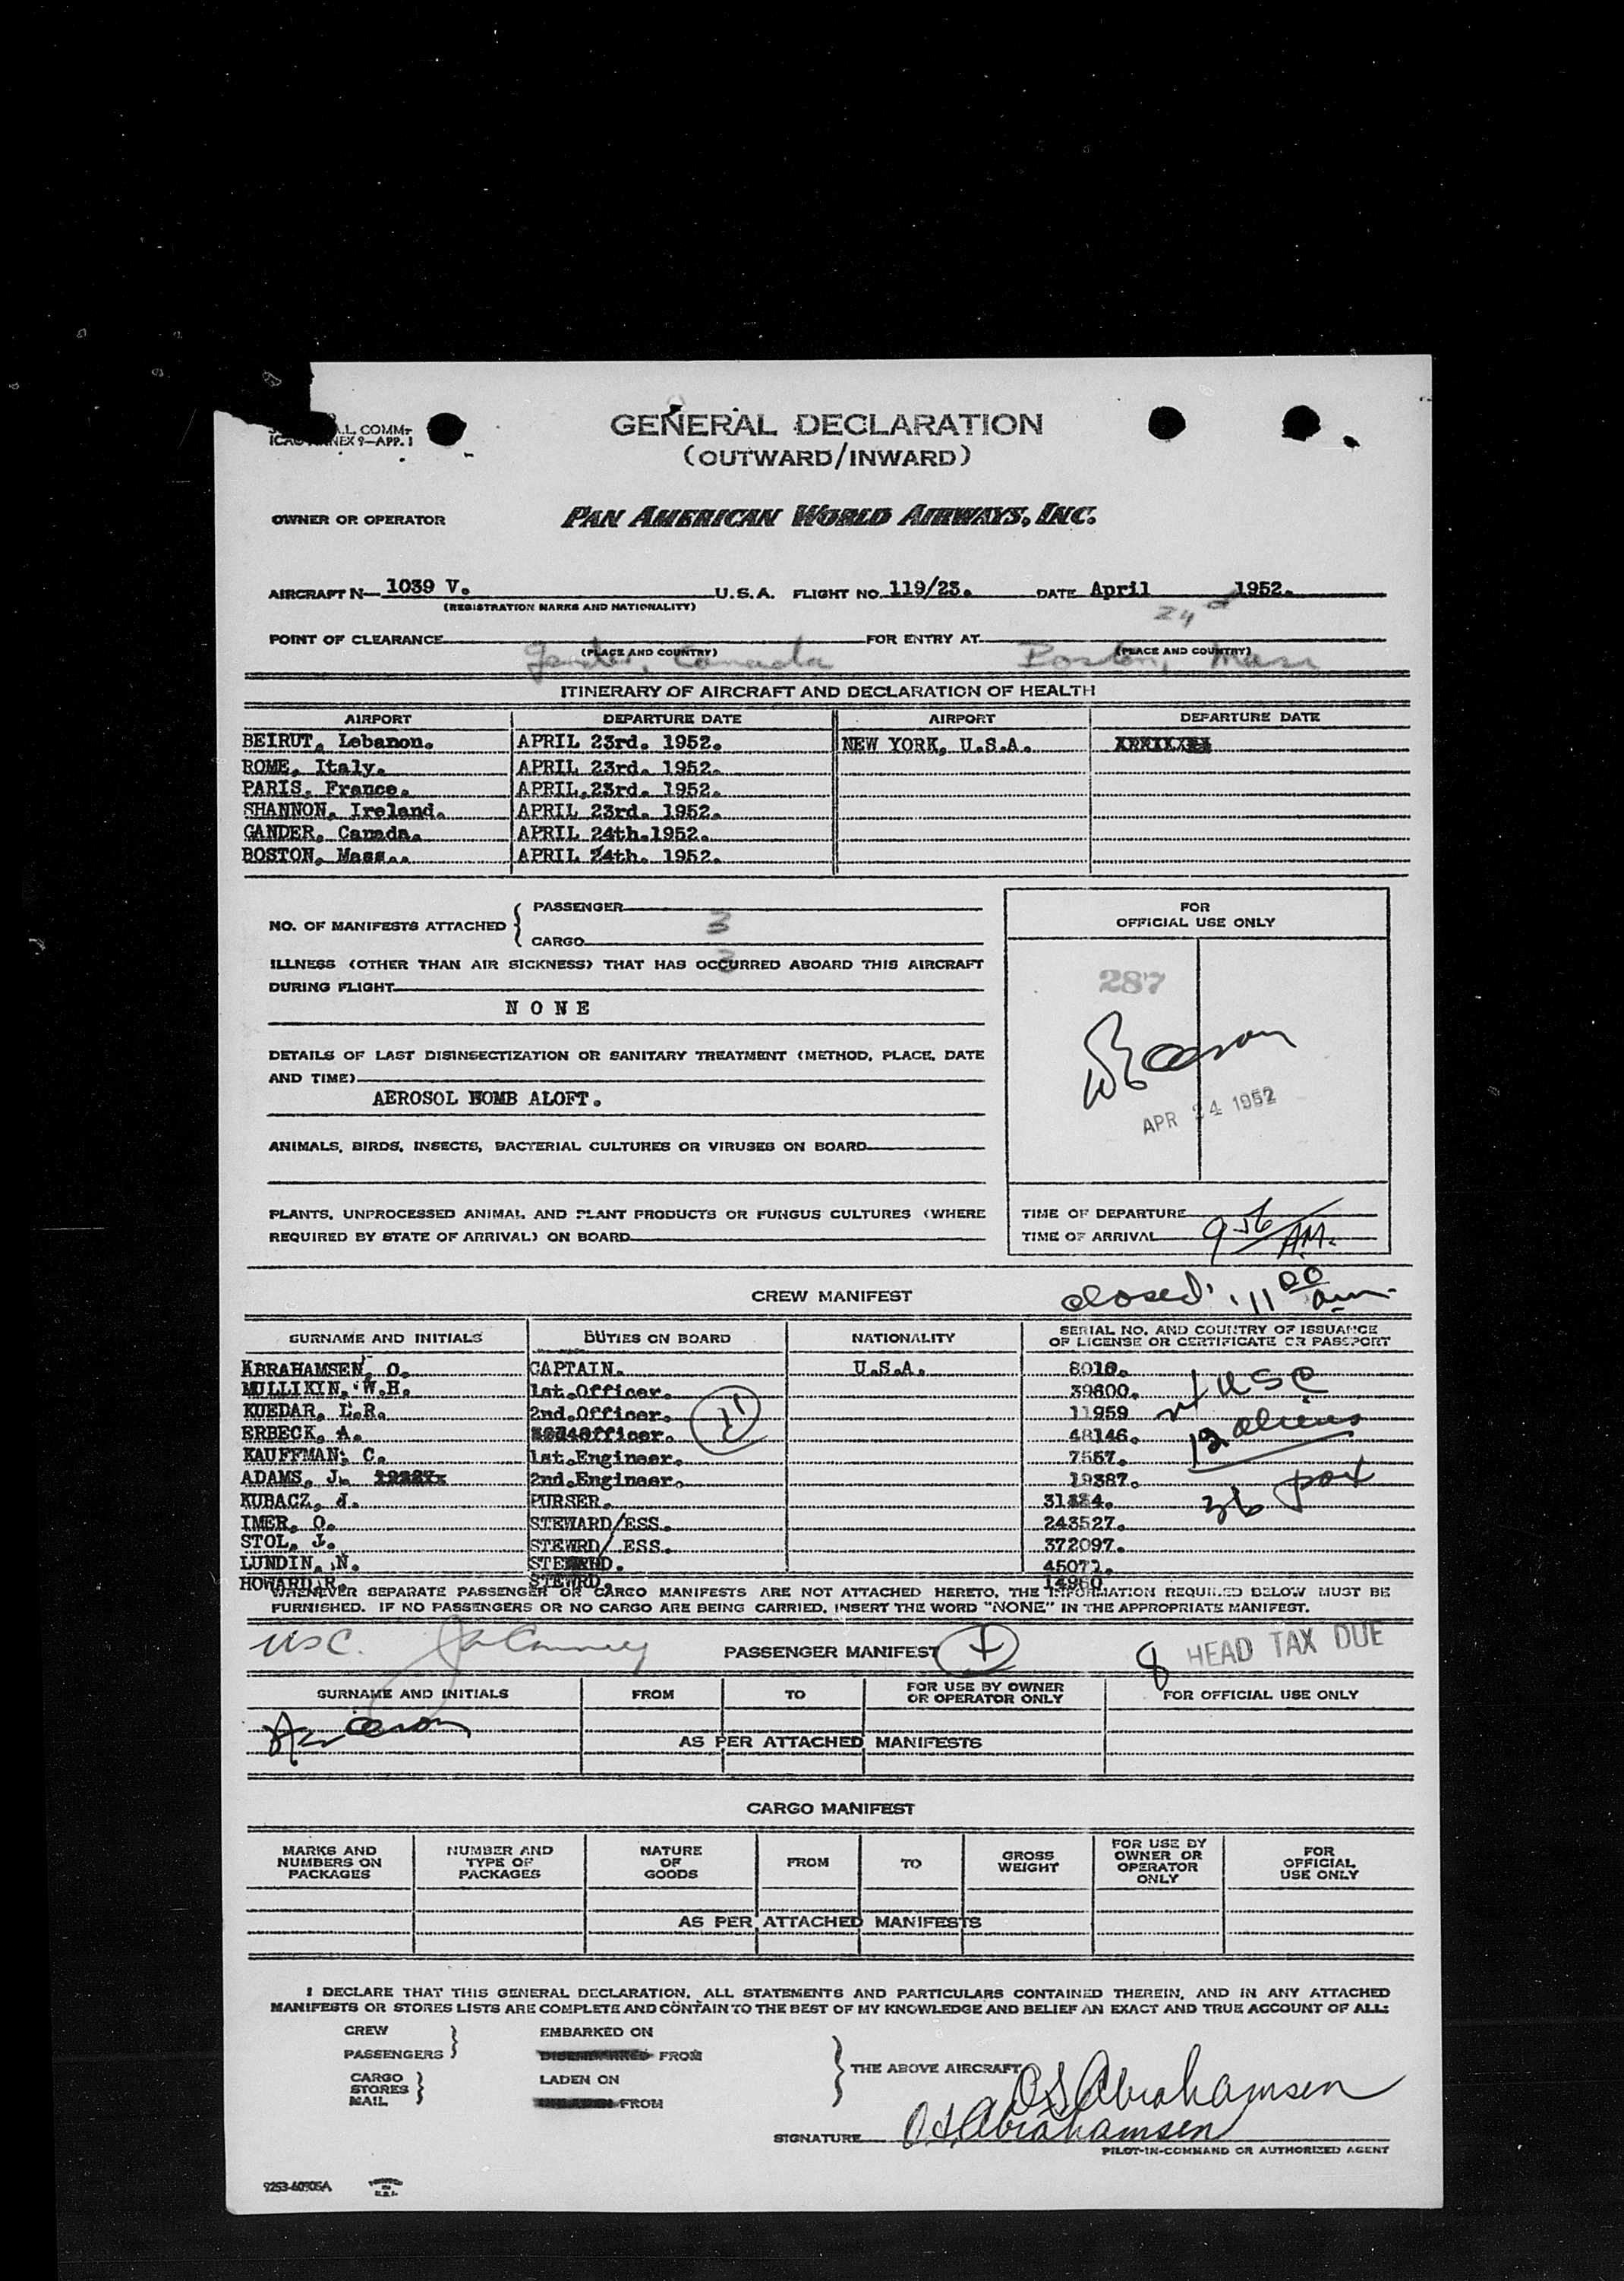 A.L. COMM-
ICAO ANNEX 9—APP. 1
GENERAL DECLARATION
(OUTWARD/INWARD)
OWNER OR OPERATOR PAN AMERICAN WORLD AIRWAYS, INC.
AIRCRAFT N— 1039 V. U.S.A. FLIGHT NO. 119/23. DATE April 1952.
(REGISTRATION MARKS AND NATIONALITY) 24
POINT OF CLEARANCE FOR ENTRY AT
Gander, Canada (PLACE AND COUNTRY) Boston, Mass (PLACE AND COUNTRY)
ITINERARY OF AIRCRAFT AND DECLARATION OF HEALTH
AIRPORT DEPARTURE DATE AIRPORT DEPARTURE DATE
BEIRUT, Lebanon. APRIL 23rd. 1952. NEW YORK, U.S.A.
ROME, Italy. APRIL 23rd. 1952.
PARIS, France. APRIL.23rd. 1952.
SHANNON, Ireland. APRIL 23rd. 1952.
GANDER, Canada. APRIL 24th.1952.
BOSTON, Mass.. APRIL 24th. 1952.
NO. OF MANIFESTS ATTACHED { PASSENGER 3
CARGO 3
ILLNESS (OTHER THAN AIR SICKNESS) THAT HAS OCCURRED ABOARD THIS AIRCRAFT
DURING FLIGHT
N O N E
DETAILS OF LAST DISINSECTIZATION OR SANITARY TREATMENT (METHOD, PLACE, DATE
AND TIME)
AEROSOL BOMB ALOFT.
ANIMALS, BIRDS, INSECTS, BACTERIAL CULTURES OR VIRUSES ON BOARD
PLANTS, UNPROCESSED ANIMAL AND PLANT PRODUCTS OR FUNGUS CULTURES (WHERE
REQUIRED BY STATE OF ARRIVAL) ON BOARD
FOR
OFFICIAL USE ONLY
287
APR 24 1952
TIME OF DEPARTURE
TIME OF ARRIVAL 9 56 AM.
CREW MANIFEST closed 11 00 am.
SURNAME AND INITIALS DUTIES ON BOARD NATIONALITY SERIAL NO. AND COUNTRY OF ISSUANCE
OF LICENSE OR CERTIFICATE OR PASSPORT
ABRAHAMSEN, O. CAPTAIN. U.S.A. 8010.
MULLIKIN, W.H. 1st.Officer. 39800.
KUEDAR, L.R. 2nd.Officer. 11 11959
ERBECK, A. Officer. 48146.
KAUFFMAN, C. 1st.Engineer. 7567.
ADAMS, J. 2nd.Engineer. 19387.
KUBACZ, J. PURSER.
IMER, O. STEWARD/ESS. 243527.
STOL, J. STEWRD/ ESS. 372097.
LUNDIN, N. STEWARD. 45071.
HOWARD R. STEWRD. 14960
USC
12 aliens
36 port
WHENEVER SEPARATE PASSENGER OR CARGO MANIFESTS ARE NOT ATTACHED HERETO, THE INFORMATION REQUIRED BELOW MUST BE
FURNISHED. IF NO PASSENGERS OR NO CARGO ARE BEING CARRIED, INSERT THE WORD "NONE" IN THE APPROPRIATE MANIFEST.
USC. PASSENGER MANIFEST 8 HEAD TAX DUE
SURNAME AND INITIALS FROM TO FOR USE BY OWNER
OR OPERATOR ONLY FOR OFFICIAL USE ONLY
AS PER ATTACHED MANIFESTS
CARGO MANIFEST
MARKS AND
NUMBERS ON
PACKAGES
NUMBER AND
TYPE OF
PACKAGES
NATURE
OF
GOODS
FROM
TO
GROSS
WEIGHT
FOR USE BY
OWNER OR
OPERATOR
ONLY
FOR
OFFICIAL
USE ONLY
AS PER ATTACHED MANIFESTS
I DECLARE THAT THIS GENERAL DECLARATION, ALL STATEMENTS AND PARTICULARS CONTAINED THEREIN, AND IN ANY ATTACHED
MANIFESTS OR STORES LISTS ARE COMPLETE AND CONTAIN TO THE BEST OF MY KNOWLEDGE AND BELIEF AN EXACT AND TRUE ACCOUNT OF ALL:
CREW
PASSENGERS } EMBARKED ON
DISEMBARKED FROM
CARGO
STORES
MAIL } LADEN ON
UNLADEN FROM
} THE ABOVE AIRCRAFT
O S Abrahamsen
SIGNATURE O.S. Abrahamsen
PILOT-IN-COMMAND OR AUTHORIZED AGENT
9253-60905A